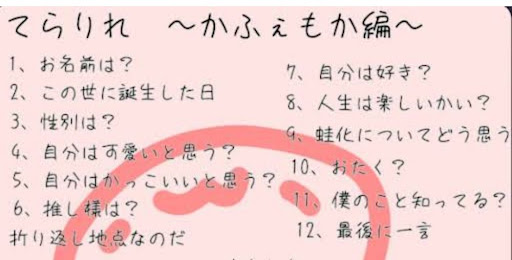 てらりれ　〜かふぇもか編〜
1、お名前は？
2、この世に誕生した日
3、性別は？
4、自分は可愛いと思う？
5、自分はかっこいいと思う？
6、推し様は？
折り返し地点なのだ
7、自分は好き？
8、人生は楽しいかい？
9、蛙化についてどう思う
10、おたく？
11、僕のこと知ってる？
12、最後に一言